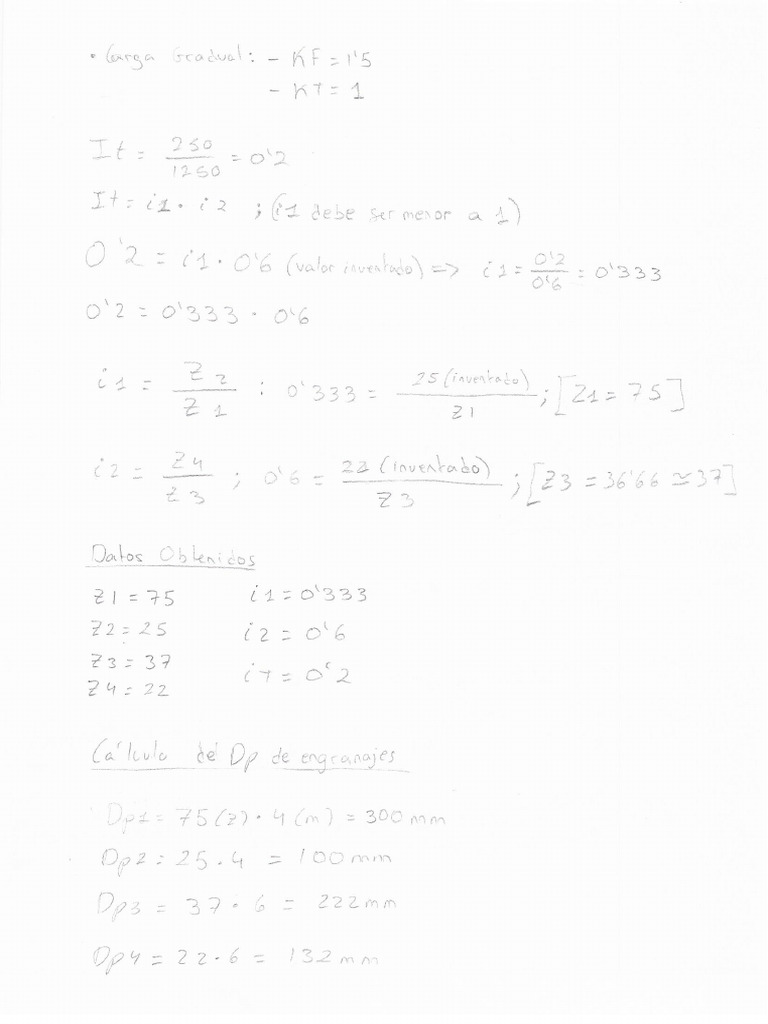 • Carga Gradual: - KF = 1'5
- KT = 1
It = 250/1250 = 0'2
It = i1 · i2 ; (i1 debe ser menor a 1)
0'2 = i1 · 0'6 (valor inventado) => i1 = 0'2/0'6 = 0'333
0'2 = 0'333 · 0'6
i1 = Z2/Z1 : 0'333 = 25 (inventado)/Z1 ; [Z1 = 75]
i2 = Z4/Z3 ; 0'6 = 22 (inventado)/Z3 ; [Z3 = 36'66 ≃ 37]
Datos Obtenidos
Z1 = 75 i1 = 0'333
Z2 = 25 i2 = 0'6
Z3 = 37 iT = 0'2
Z4 = 22
Cálculo de Dp de engranajes
Dp1 = 75 (z) · 4 (m) = 300 mm
Dp2 = 25 · 4 = 100 mm
Dp3 = 37 · 6 = 222 mm
Dp4 = 22 · 6 = 132 mm